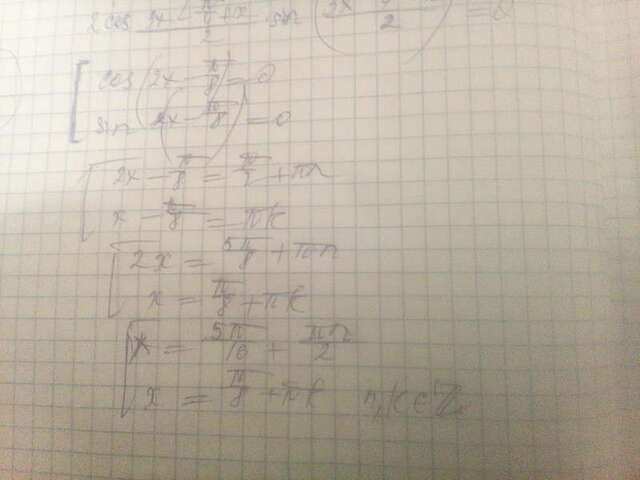 2cos (3x - π/4 + x)/2 · sin
cos(2x - π/8) = 0
sin(x - π/8) = 0
2x - π/8 = π/2 + πn
x - π/8 = πk
2x = 5π/8 + πn
x = π/8 + πk
x = 5π/16 + πn/2
x = π/8 + πk n,k∈Z